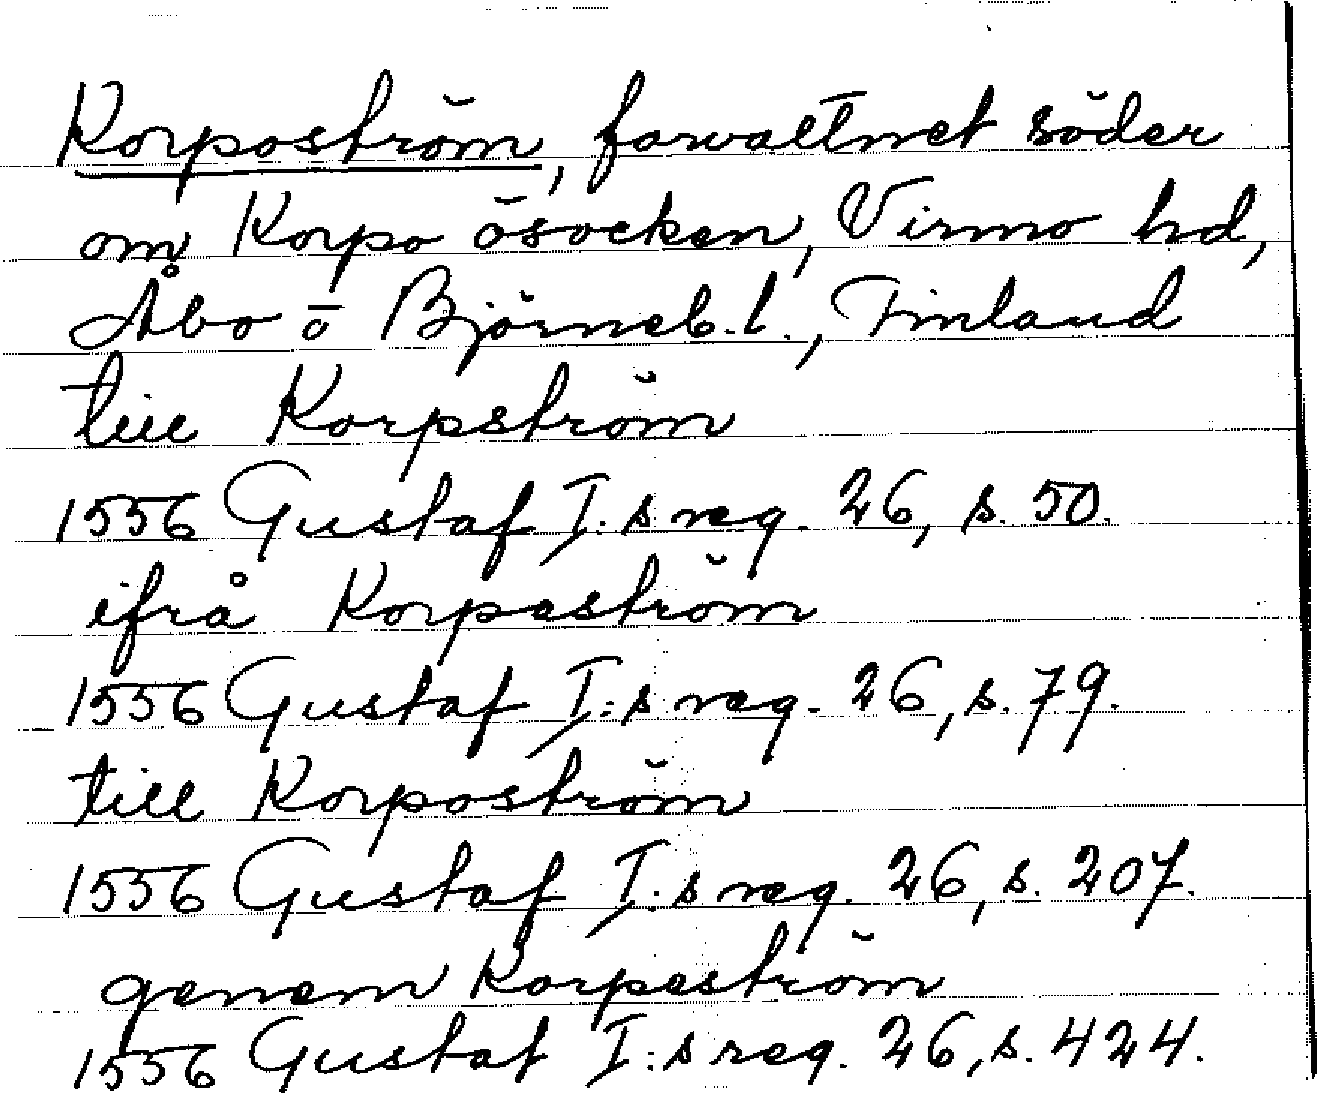 Korpoström, farvattnet söder
om Korpo ösocken, Virmo hd,
Åbo o Björneb.l., Finland
till Korpström
1556 Gustaf I:s reg. 26, s. 50.
ifrå Korpeström
1556 Gustaf I:s reg. 26, s. 79.
till Korpoström
1556 Gustaf I:s reg. 26, s. 207.
genem Korpeström
1556 Gustaf I:s reg. 26, s. 424.